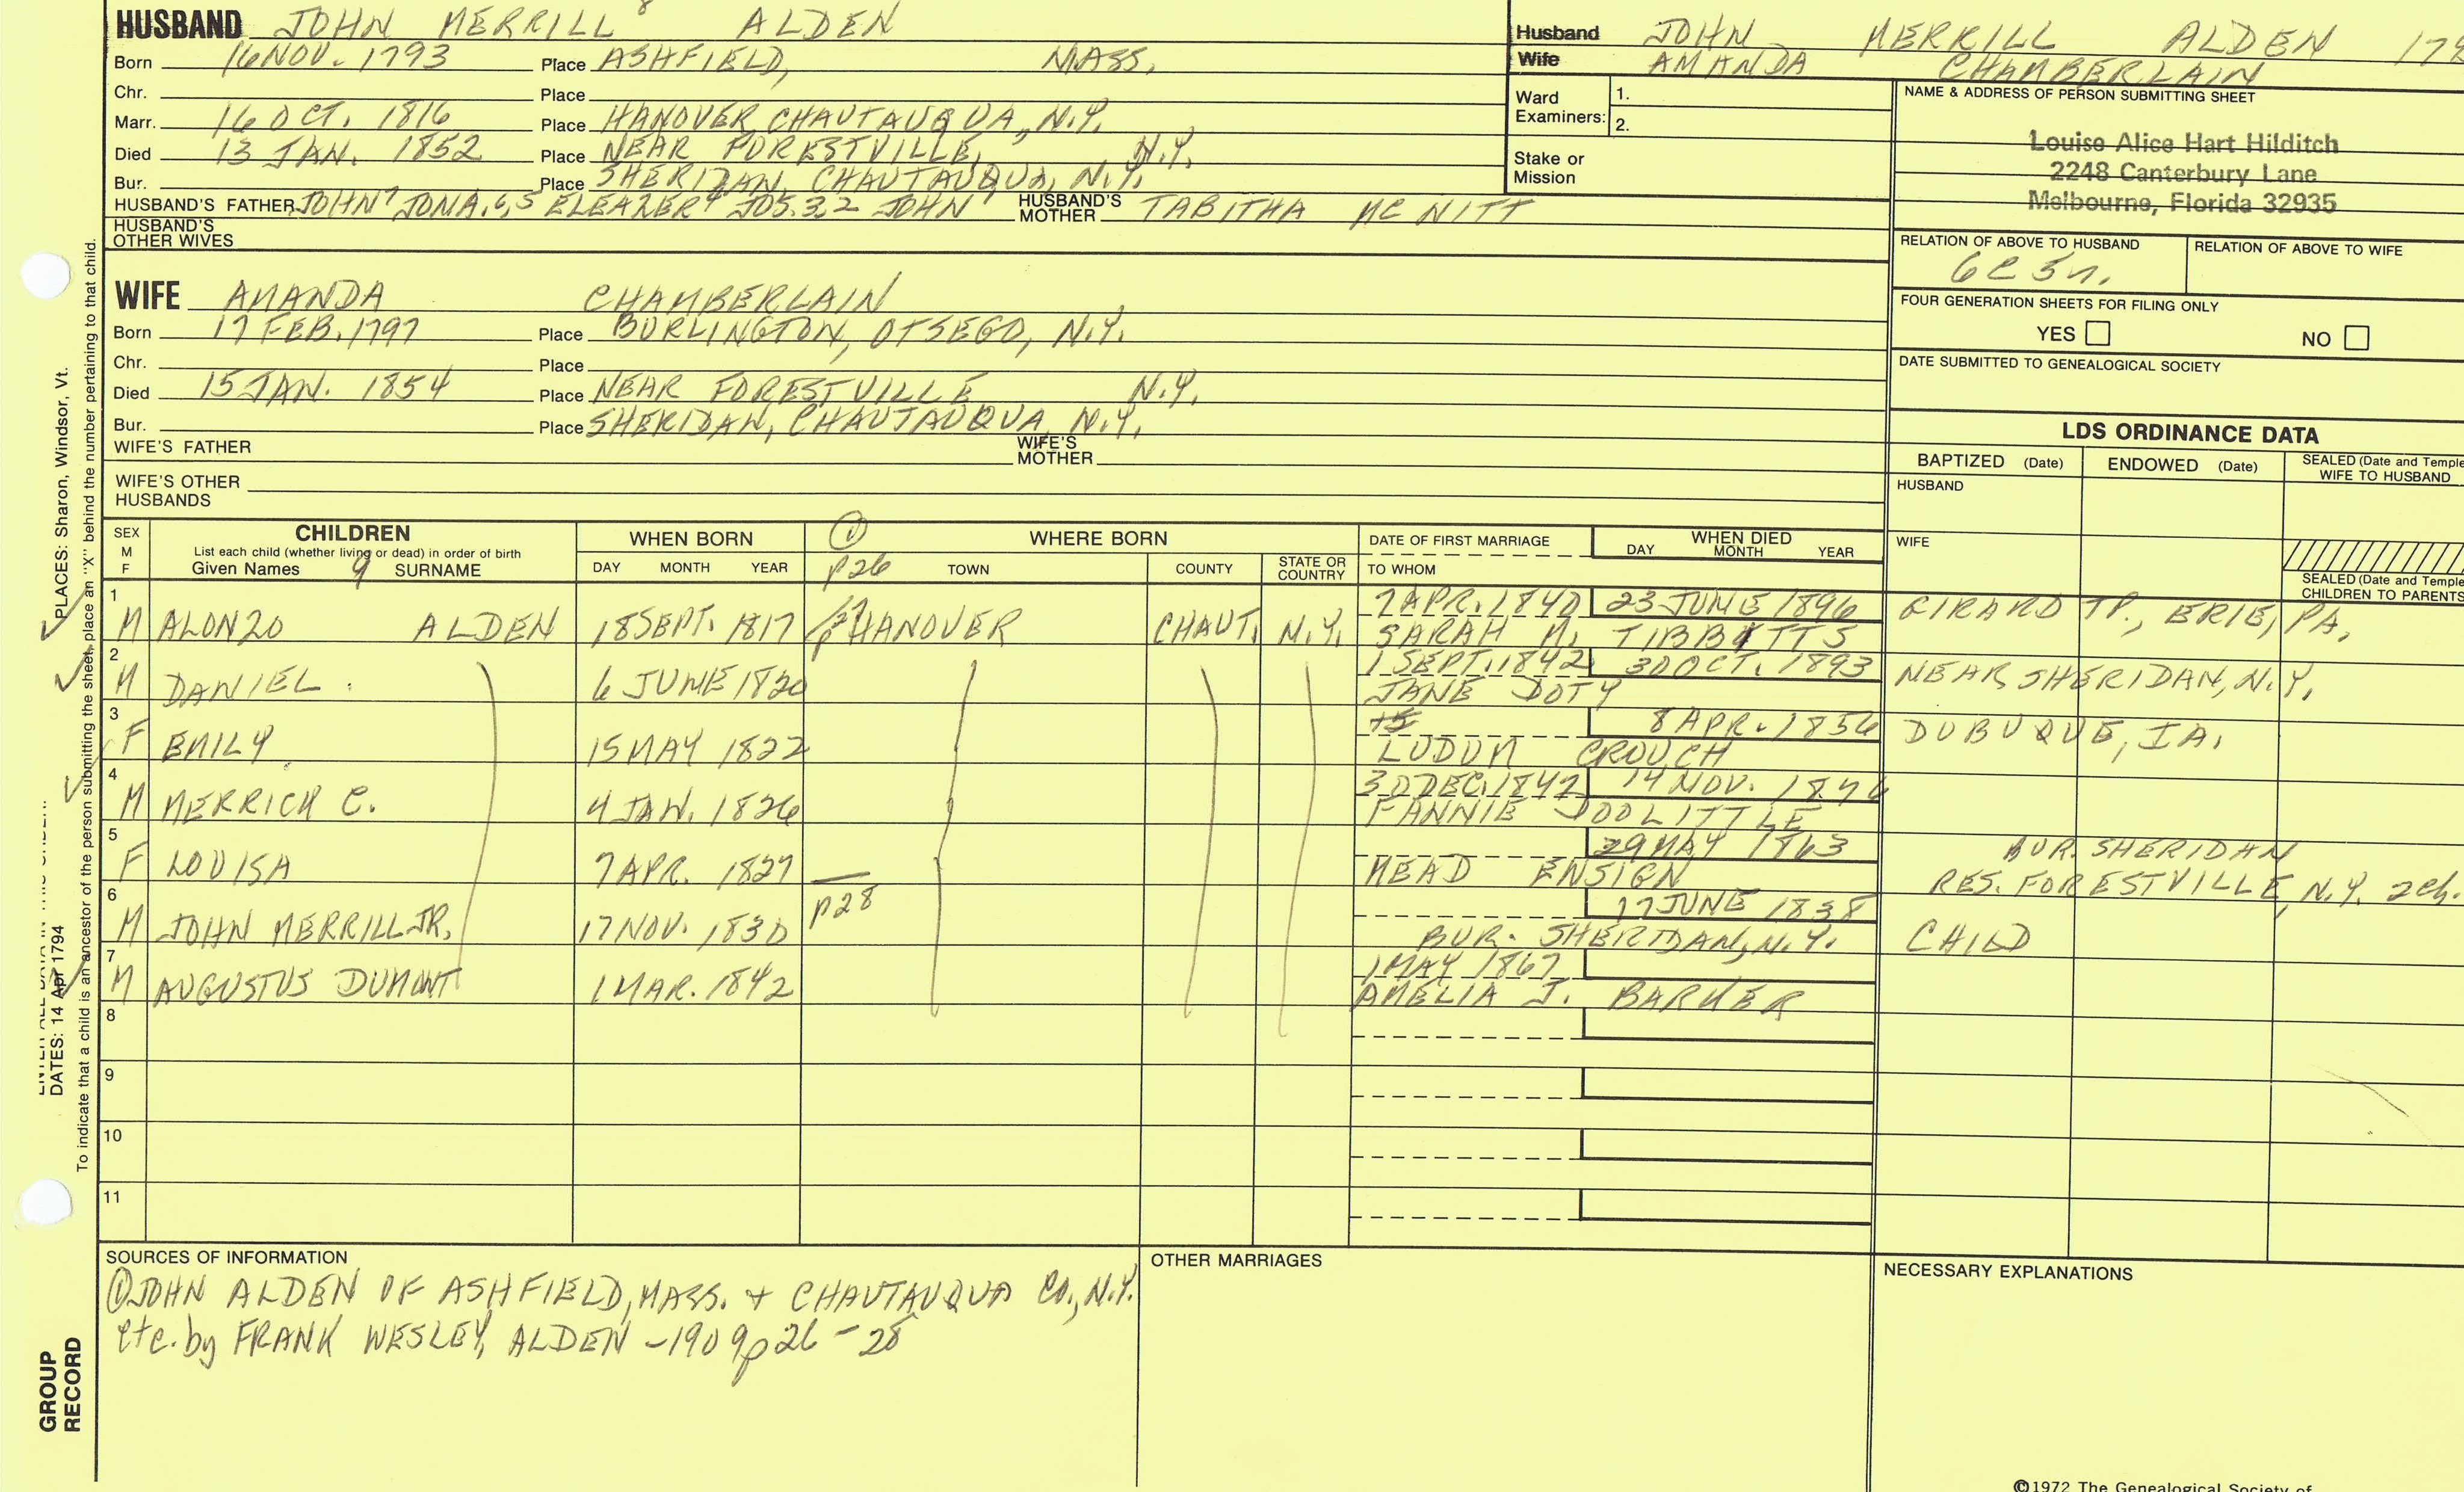 HUSBAND JOHN MERRILL 8 ALDEN
Born 16 NOV. 1793 Place ASHFIELD, MASS.
Chr. Place
Marr. 16 OCT. 1816 Place HANOVER, CHAUTAUQUA, N.Y.
Died 13 JAN. 1852 Place NEAR FORESTVILLE, N.Y.
Bur. Place SHERIDAN, CHAUTAUQUA, N.Y.
HUSBAND'S FATHER JOHN 7 JONA. 6,5 ELEAZER 4 JOS. 3,2 JOHN 1 HUSBAND'S MOTHER TABITHA MC NITT
HUSBAND'S OTHER WIVES
WIFE AMANDA CHAMBERLAIN
Born 17 FEB. 1797 Place BURLINGTON, OTSEGO, N.Y.
Chr. Place
Died 15 JAN. 1854 Place NEAR FORESTVILLE N.Y.
Bur. Place SHERIDAN, CHAUTAUQUA, N.Y.
WIFE'S FATHER WIFE'S MOTHER
WIFE'S OTHER HUSBANDS
Husband JOHN MERRILL ALDEN
Wife AMANDA CHAMBERLAIN
Ward Examiners: 1.
2.
Stake or Mission
NAME & ADDRESS OF PERSON SUBMITTING SHEET
Louise Alice Hart Hilditch
2248 Canterbury Lane
Melbourne, Florida 32935
RELATION OF ABOVE TO HUSBAND RELATION OF ABOVE TO WIFE
FOUR GENERATION SHEETS FOR FILING ONLY
YES NO
DATE SUBMITTED TO GENEALOGICAL SOCIETY
LDS ORDINANCE DATA
BAPTIZED (Date) ENDOWED (Date) SEALED (Date and Temple WIFE TO HUSBAND
HUSBAND
WIFE
SEALED (Date and Temple
CHILDREN TO PARENTS
SEX M F CHILDREN WHEN BORN ① WHERE BORN DATE OF FIRST MARRIAGE WHEN DIED
List each child (whether living or dead) in order of birth
Given Names 9 SURNAME DAY MONTH YEAR p26 TOWN COUNTY STATE OR COUNTRY TO WHOM DAY MONTH YEAR
1 7 APR. 1840 23 JUNE 1896 GIRARD TP., ERIE, PA.
M ALONZO ALDEN 18 SEPT. 1817 HANOVER CHAUT. N.Y. SARAH M. TIBBITTS
2 1 SEPT. 1842 30 OCT. 1893 NEAR SHERIDAN, N.Y.
M DANIEL 6 JUNE 1820 JANE DOTY
3 8 APR. 1856 DUBUQUE, IA.
F EMILY 15 MAY 1822 CROUCH
4 30 DEC. 1842 14 NOV.
M MERRICK C. 4 JAN. 1826 FANNIE DOOLITTLE
5 29 MAY 1863 BUR. SHERIDAN
F LOUISA 7 APR. 1827 MEAD ENSIGN RES. FORESTVILLE, N.Y. 2 ch.
6 17 JUNE 1838
M JOHN MERRILL JR. 17 NOV. 1830 p28 BUR. SHERIDAN, N.Y. CHILD
7 1 MAY 1867
M AUGUSTUS DUMONT 1 MAR. 1842 AMELIA J. BARKER
8
9
10
11
SOURCES OF INFORMATION
① JOHN ALDEN OF ASHFIELD, MASS. + CHAUTAUQUA CO., N.Y.
etc. by FRANK WESLEY ALDEN - 1909 p26 - 28
OTHER MARRIAGES
NECESSARY EXPLANATIONS
©1972 The Genealogical Society of
PLACES: Sharon, Windsor, Vt.
DATES: 14 Apr 1794
To indicate that a child is an ancestor of the person submitting the sheet, place an "X" behind the number pertaining to that child.
GROUP
RECORD